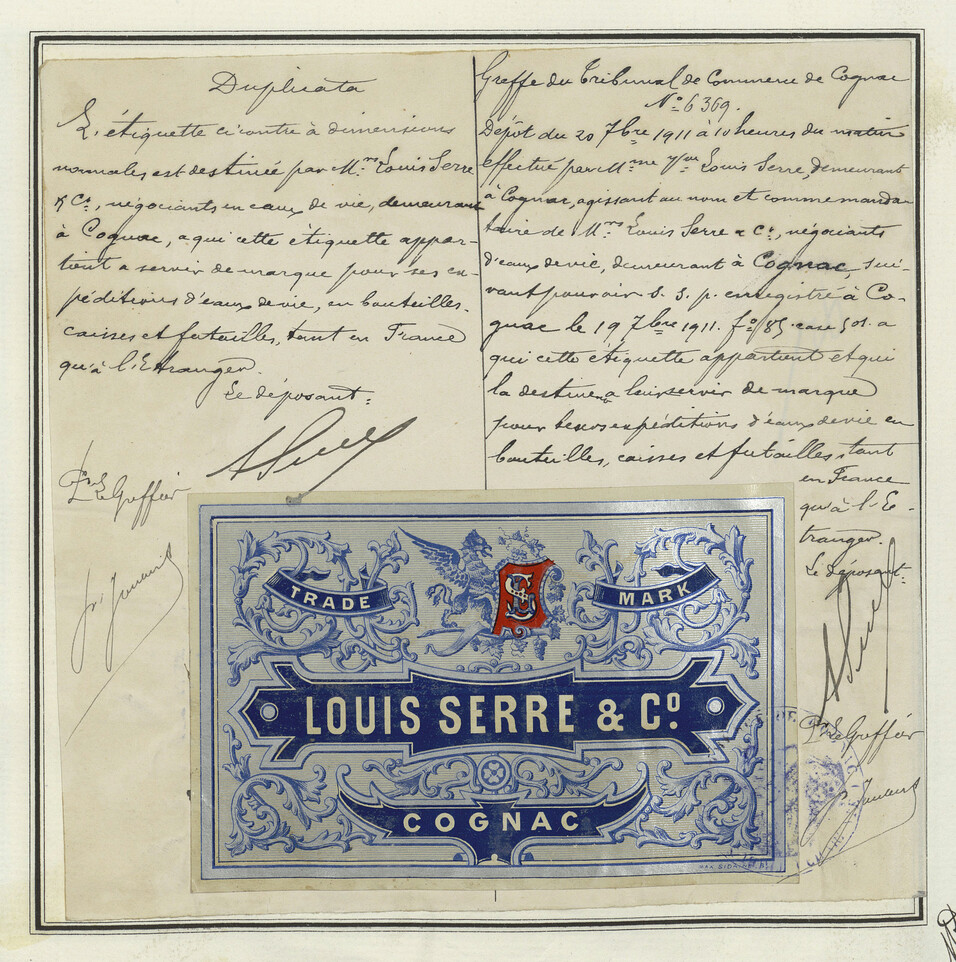 Duplicata
L'étiquette ci contre à dimensions
normales est destinée par M.rs Louis Serre
& Cº, négociants en eaux de vie, demeurant
à Cognac, a qui cette etiquette appar-
tient a servir de marque pour ses ex-
péditions d'eaux de vie, en bouteilles,
caisses et futailles, tant en France
qu'à l'Etranger.
Le déposant:
Le Greffier
Greffe du Tribunal de Commerce de Cognac
Nº 6369.
Dépôt du 20 7bre 1911 à 10 heures du matin
effectué par Mme Vve Louis Serre, demeurant
à Cognac, agissant au nom et comme manda
taire de M.rs Louis Serre & Cº, négociants
d'eaux de vie, demeurant à Cognac sui-
vant pouvoir S. S. p. enregistré à Co-
gnac le 19 7bre 1911. fº 85 case 501. a
qui cette étiquette appartient et qui
la destine a leur servir de marque
pour expéditions d'eaux de vie en
bouteilles, caisses et futailles, tant
en France
qu'à l'E-
tranger.
Le déposant:
Le Greffier
TRADE MARK
LOUIS SERRE & Cº
COGNAC